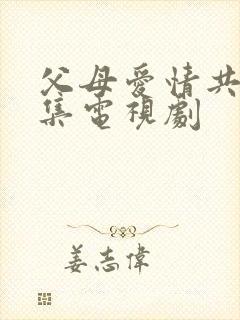 父母愛情共
集電視劇
姜志偉